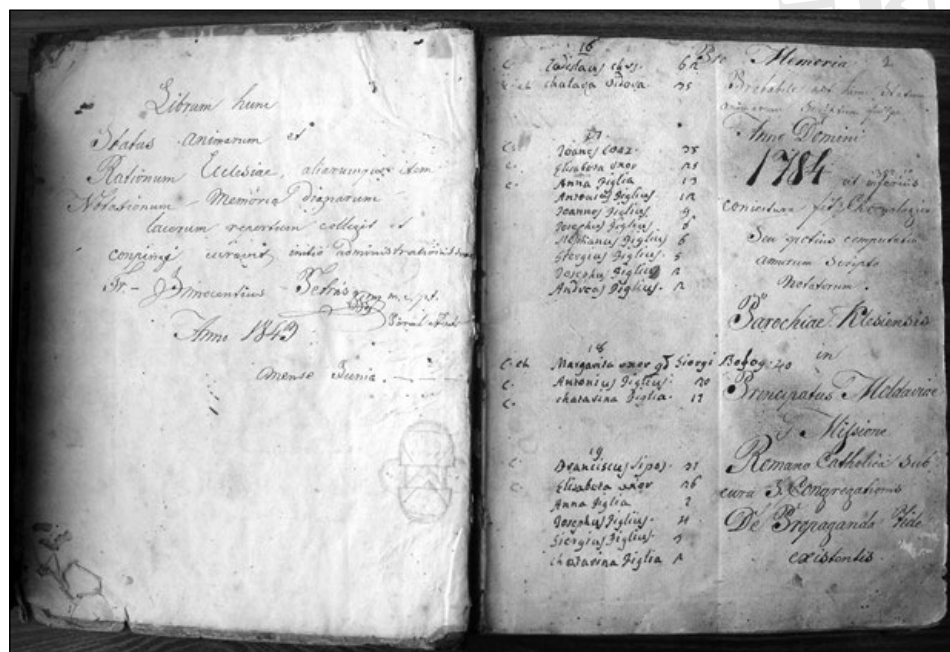 Librum hunc
Status animarum et
Rationum Ecclesiae, aliarumque item
Notationum Memoria dignarum
laicorum repertum collegit et
compingi curavit initio administrationis
Fr. Innocentius Petrás
Anno 1843
mense Iunio.
16
C. Ladislaus 62
C. ch chatarina Vidova 35
17
C. Joanes 35
C. Elisabeta uxor 25
C. Anna Figlia 13
Antonius Figlius 12
Joannes Figlius 9
Josephus Figlius 8
Stephanus Figlius 6
Giorgius Figlius 5
Josephus Figlius 2
Andreas Figlius 2
18
C. ch Margarita uxor qd Giorgi 40
C. Antonius Figlius 20
C. chatarina Figlia 12
19
C. Franciscus Sipos 31
C. Elisabeta uxor 26
Anna Figlia 7
Josephus Figlius 4
Giorgius Figlius 3
chatarina Figlia 2
Pro Memoria 1
Probabile est hunc Statum
animarum Scriptum fuisse
Anno Domini
1784 ut inferius
coniectura fit Chronologica
Seu potius computatio
annorum Scripto
Notatorum.
Parochiae Klesiensis
in
Principatus Moldaviae
Missione
Romano Catholica Sub
cura S. Congregationis
De Propaganda Fide
existentis.